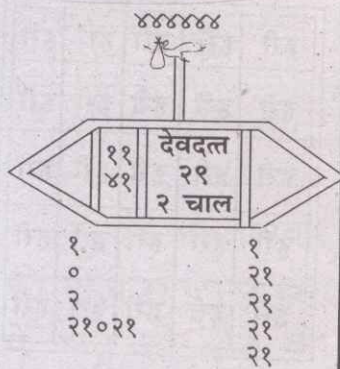 ४४४४४४
११
४१
देवदत्त
२९
२ चाल
१
०
२
२१०२१
१
२१
२१
२१
२१